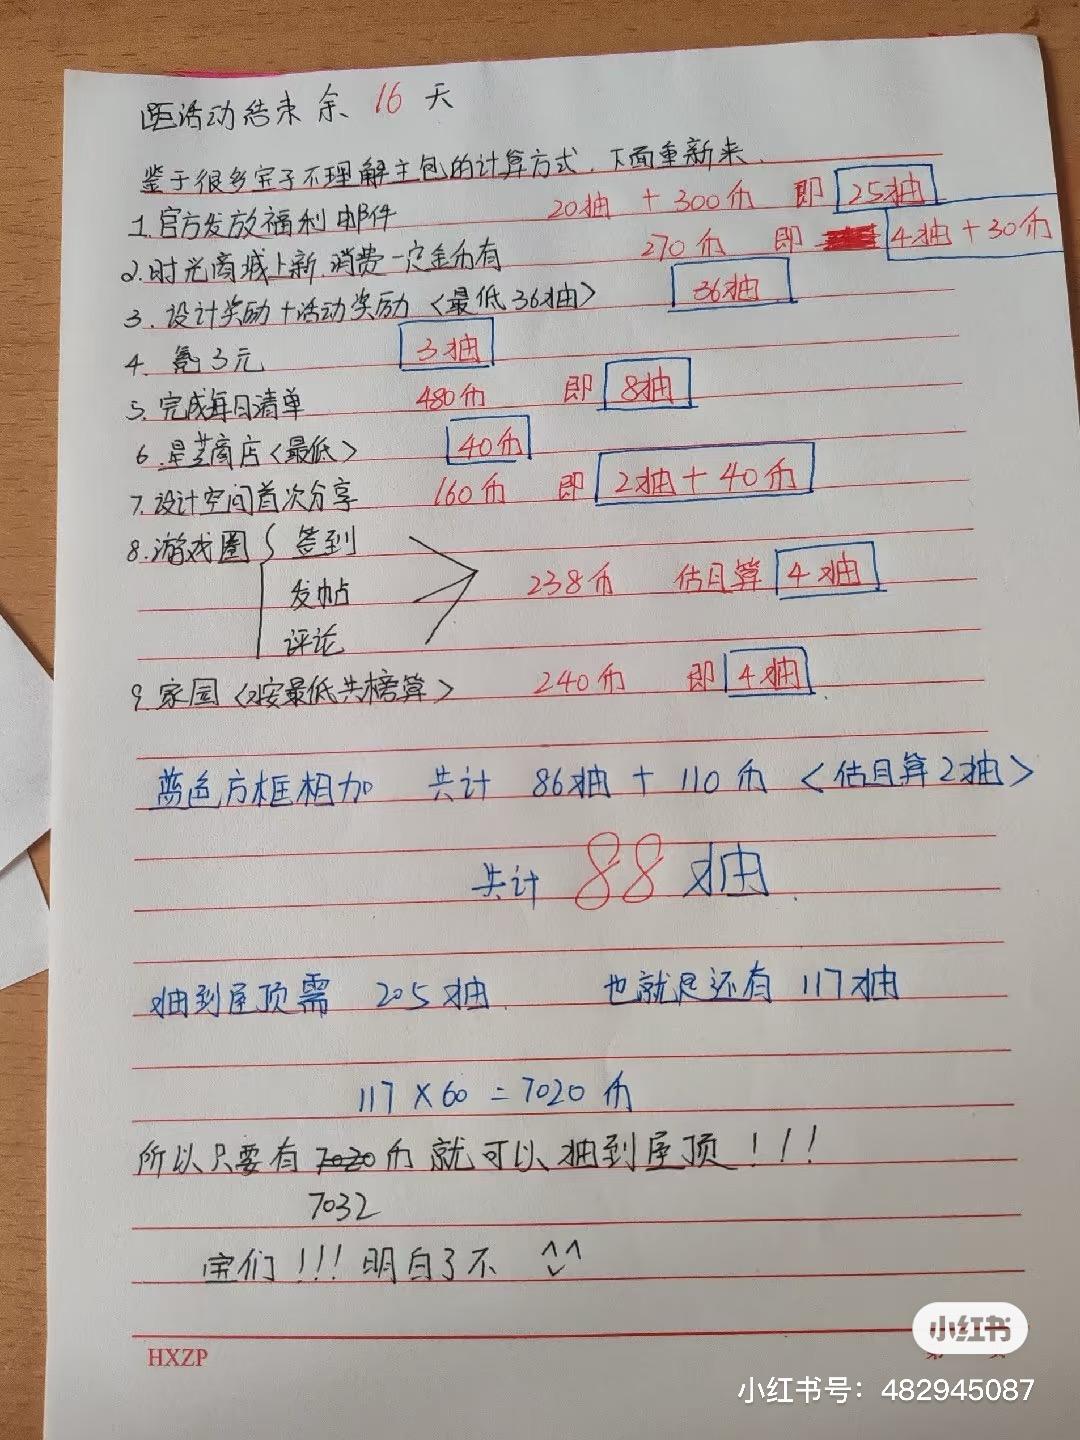 距活动结束余 16 天
鉴于很多宝子不理解主包的计算方式,下面重新来.
1.官方发放福利邮件 20抽 + 300币 即 25抽
2.时光商城上新,消费一定金币有 270币 即 4抽+30币
3.设计奖励+活动奖励<最低36抽> 36抽
4.氪3元 3抽
5.完成每日清单 480币 即 8抽
6.星芝商店<最低> 40币
7.设计空间首次分享 160币 即 2抽+40币
8.游戏圈 签到
发帖 238币 估且算 4抽
评论
9.家园<按最低共榜算> 240币 即 4抽
蓝色方框相加 共计 86抽 + 110币 <估且算2抽>
共计 88 抽.
抽到屋顶需 205抽. 也就是还有 117抽
117×60=7020币
所以只要有 7020 币就可以抽到屋顶!!!
7032
宝们!!!明白了不 ^^
HXZP
小红书
小红书号:482945087